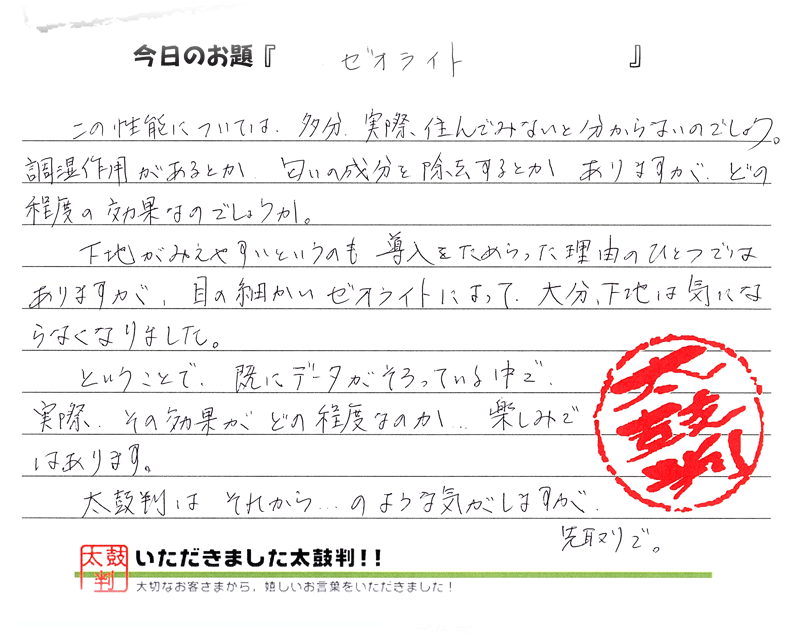 今日のお題『 ゼオライト 』
この性能については、多分、実際、住んでみないと分からないのでしょう。
調湿作用があるとか、匂いの成分を除去するとかありますが、どの
程度の効果なのでしょうか。
下地がみえやすいというのも導入をためらった理由のひとつでは
ありますが、目の細かいゼオライトによって、大分、下地は気にな
らなくなりました。
ということで、既にデータがそろっている中で、
実際、その効果がどの程度なのか…楽しみで
はあります。
太鼓判は それから…のような気がしますが、
先取りで。
太鼓判
太鼓判
いただきました太鼓判!!
大切なお客さまから、嬉しいお言葉をいただきました!